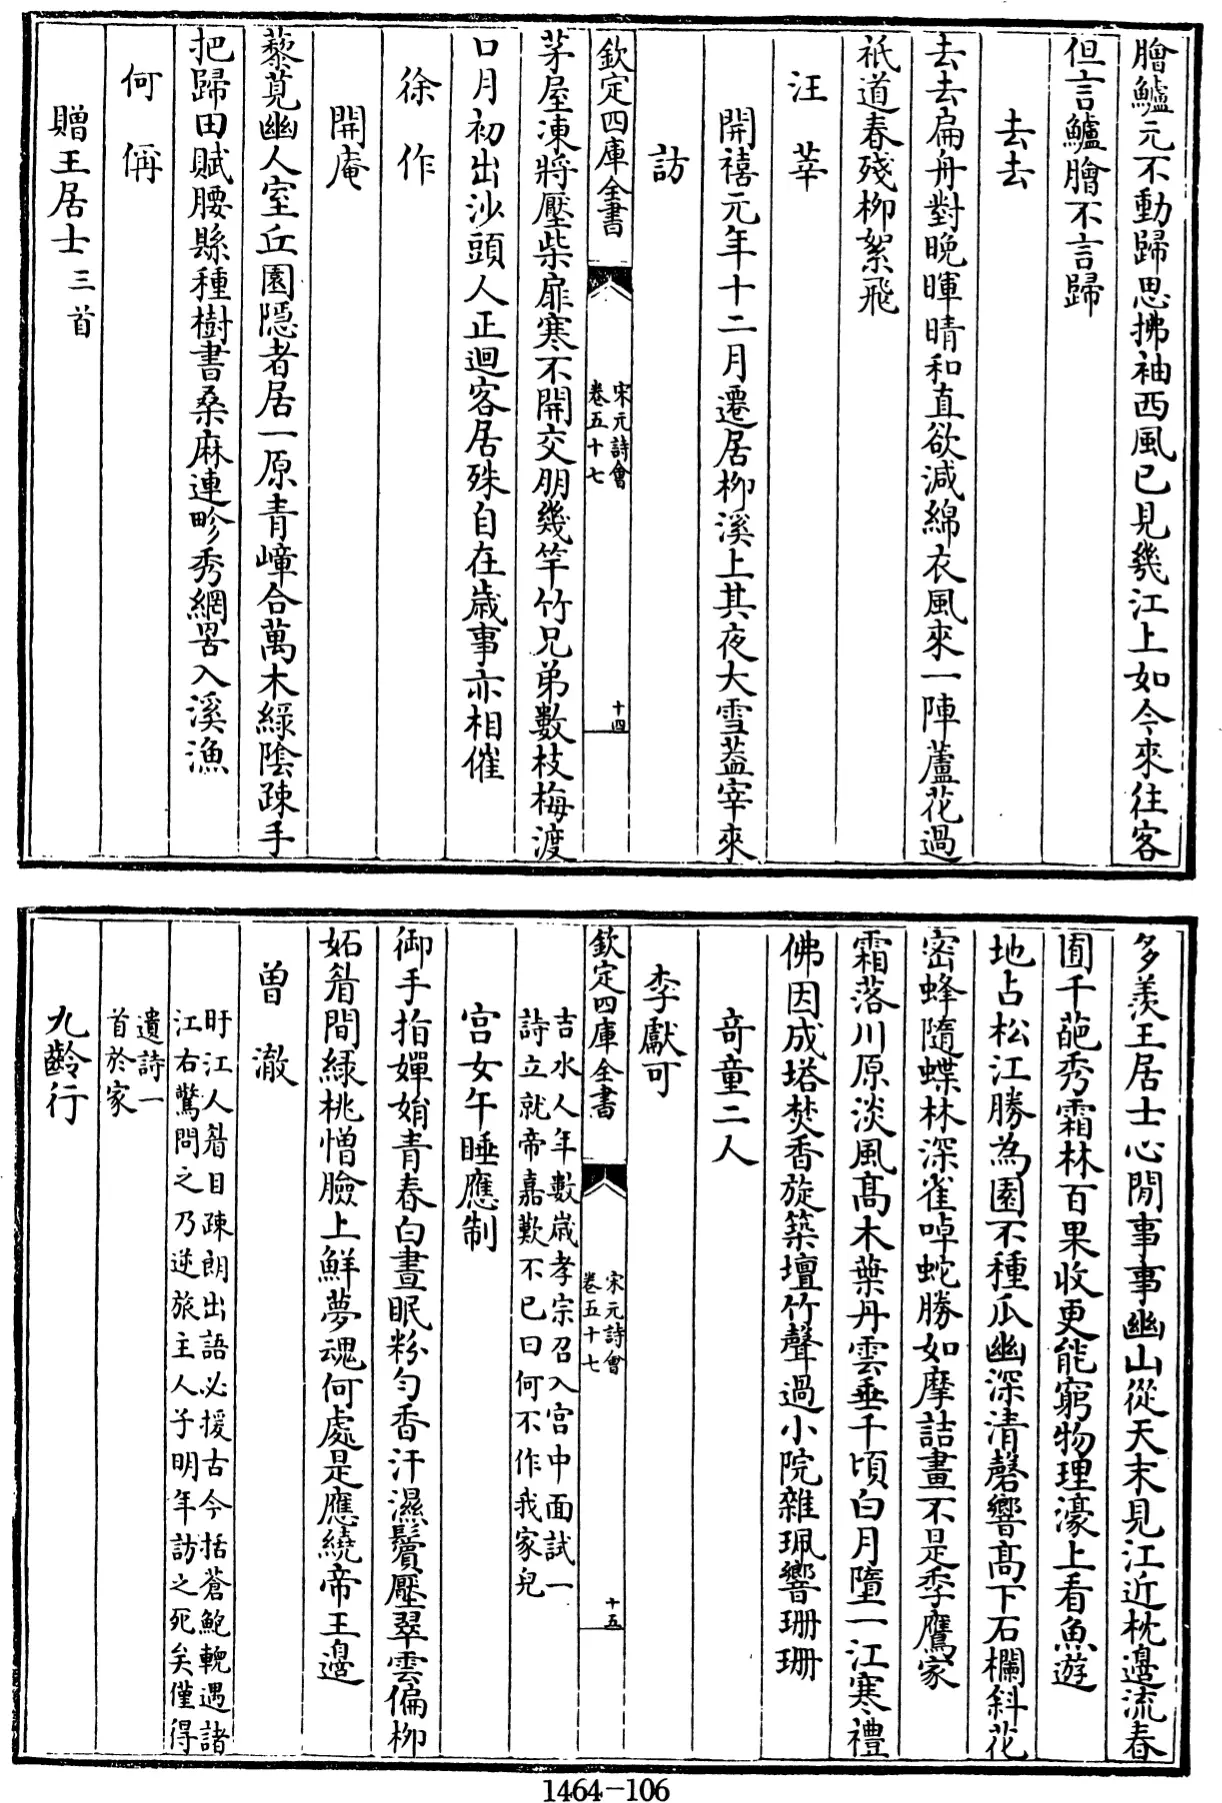 膾鱸元不動歸思拂袖西風已見幾江上如今來往客
但言鱸膾不言歸
去去
去去扁舟對晚暉晴和直欲減綿衣風來一陣蘆花過
祇道春殘柳絮飛
汪莘
開禧元年十二月遷居柳溪上其夜大雪葢宰來
訪
欽定四庫全書
宋元詩會
卷五十七
十四
茅屋凍將壓柴扉寒不開交朋幾竿竹兄弟數枝梅渡
口月初出沙頭人正迴客居殊自在歲事亦相催
徐作
開庵
藜莧幽人室丘園隱者居一原青嶂合萬木綠陰疎手
把歸田賦腰縣種樹書桑麻連畛秀網罟入溪漁
何偁
贈王居士三首
多羨王居士心閒事事幽山從天末見江近枕邊流春
圃千葩秀霜林百果收更能窮物理濠上看魚遊
地占松江勝為園不種瓜幽深清磬響高下石欄斜花
密蜂隨蝶林深雀啅蛇勝如摩詰畫不是季鷹家
霜落川原淡風高木葉丹雲垂千頃白月墮一江寒禮
佛因成塔焚香旋築壇竹聲過小院雜珮響珊珊
奇童二人
李獻可
欽定四庫全書
宋元詩會
卷五十七
十五
吉水人年數歲孝宗召入宫中面試一
詩立就帝嘉歎不已曰何不作我家兒
宫女午睡應制
御手指嬋娟青春白晝眠粉勻香汗濕鬢壓翠雲偏柳
妬眉間綠桃憎臉上鮮夢魂何處是應繞帝王邊
曾澈
盱江人眉目疎朗出語必援古今括蒼鮑輗遇諸
江右驚問之乃逆旅主人子明年訪之死矣僅得
遺詩一
首於家
九齡行
1464-106